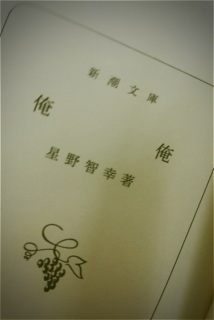 新潮文庫
俺 俺
星野智幸著